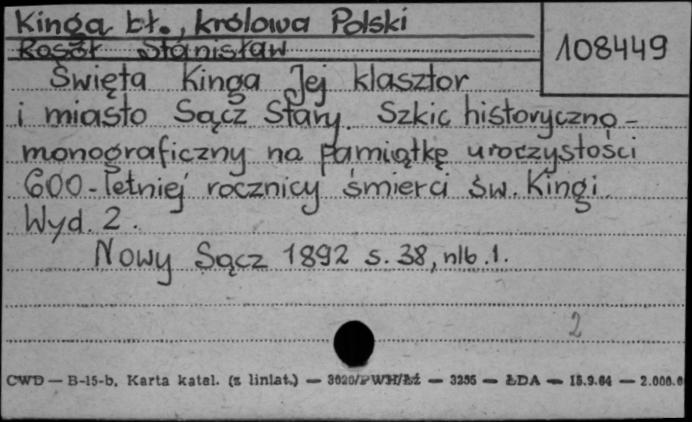 Kinga bł., królowa Polski
108449
Stanisław
Święta Kinga Jej klasztor
i miasto Sącz Stary. Szkic historyczno-
monograficzny na pamiątkę uroczystości
600-letniej rocznicy śmierci św. Kingi
Wyd. 2.
Nowy Sącz 1892 s. 38, nlb. 1.
2
CWD — B-15-b. Karta katal. (z liniat.) — 3020/PWH/Łź — 3255 — ŁDA — 15.9.64 — 2.000.0